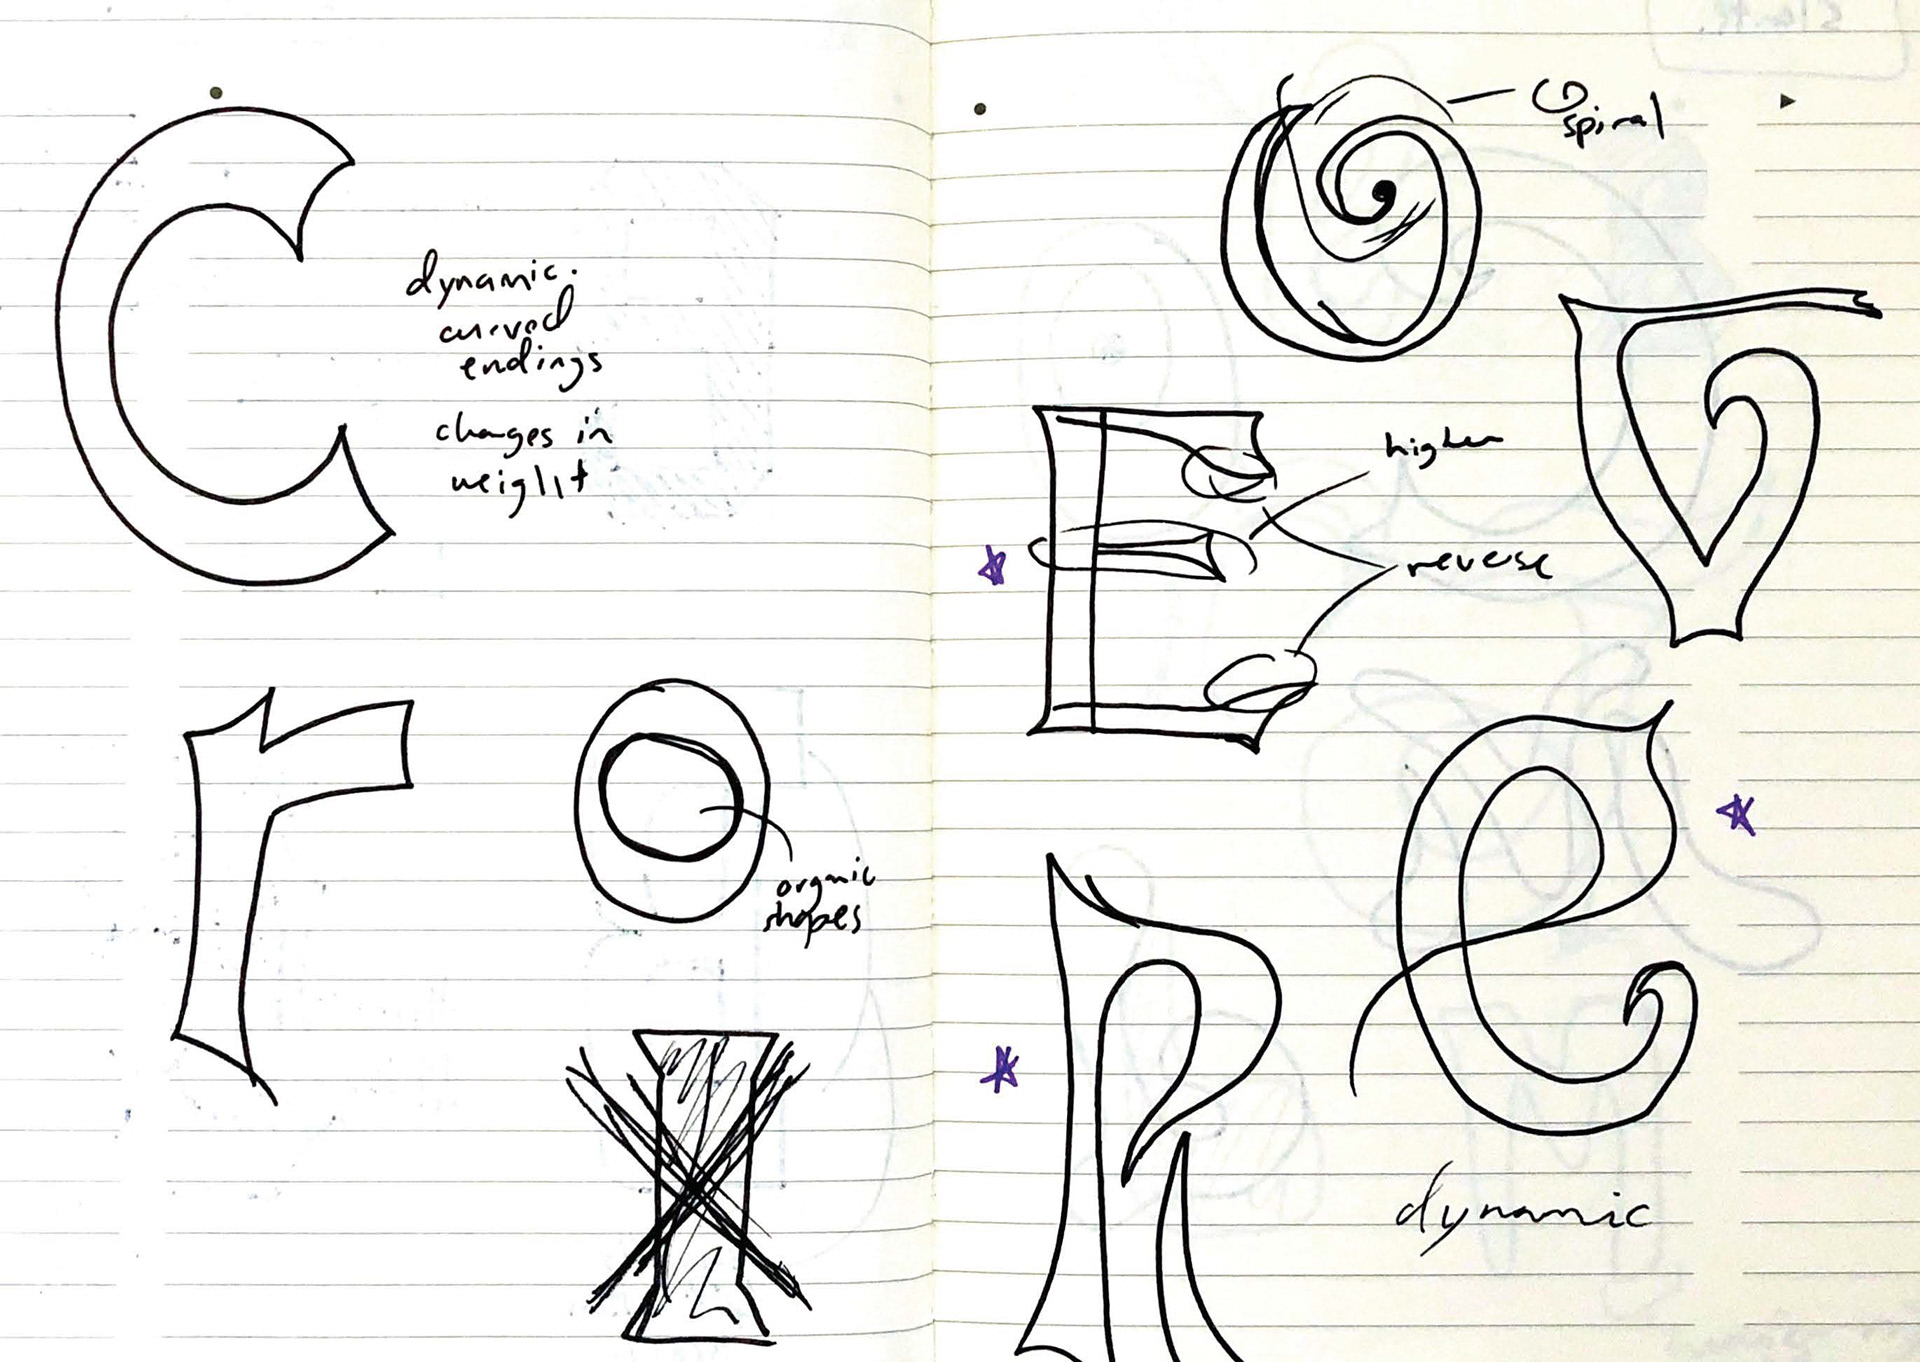 C
dynamic.
curved
endings
changes in
weight
r
o
organic
shapes
I
O
spiral
V
E
higher
reverse
e
R
dynamic